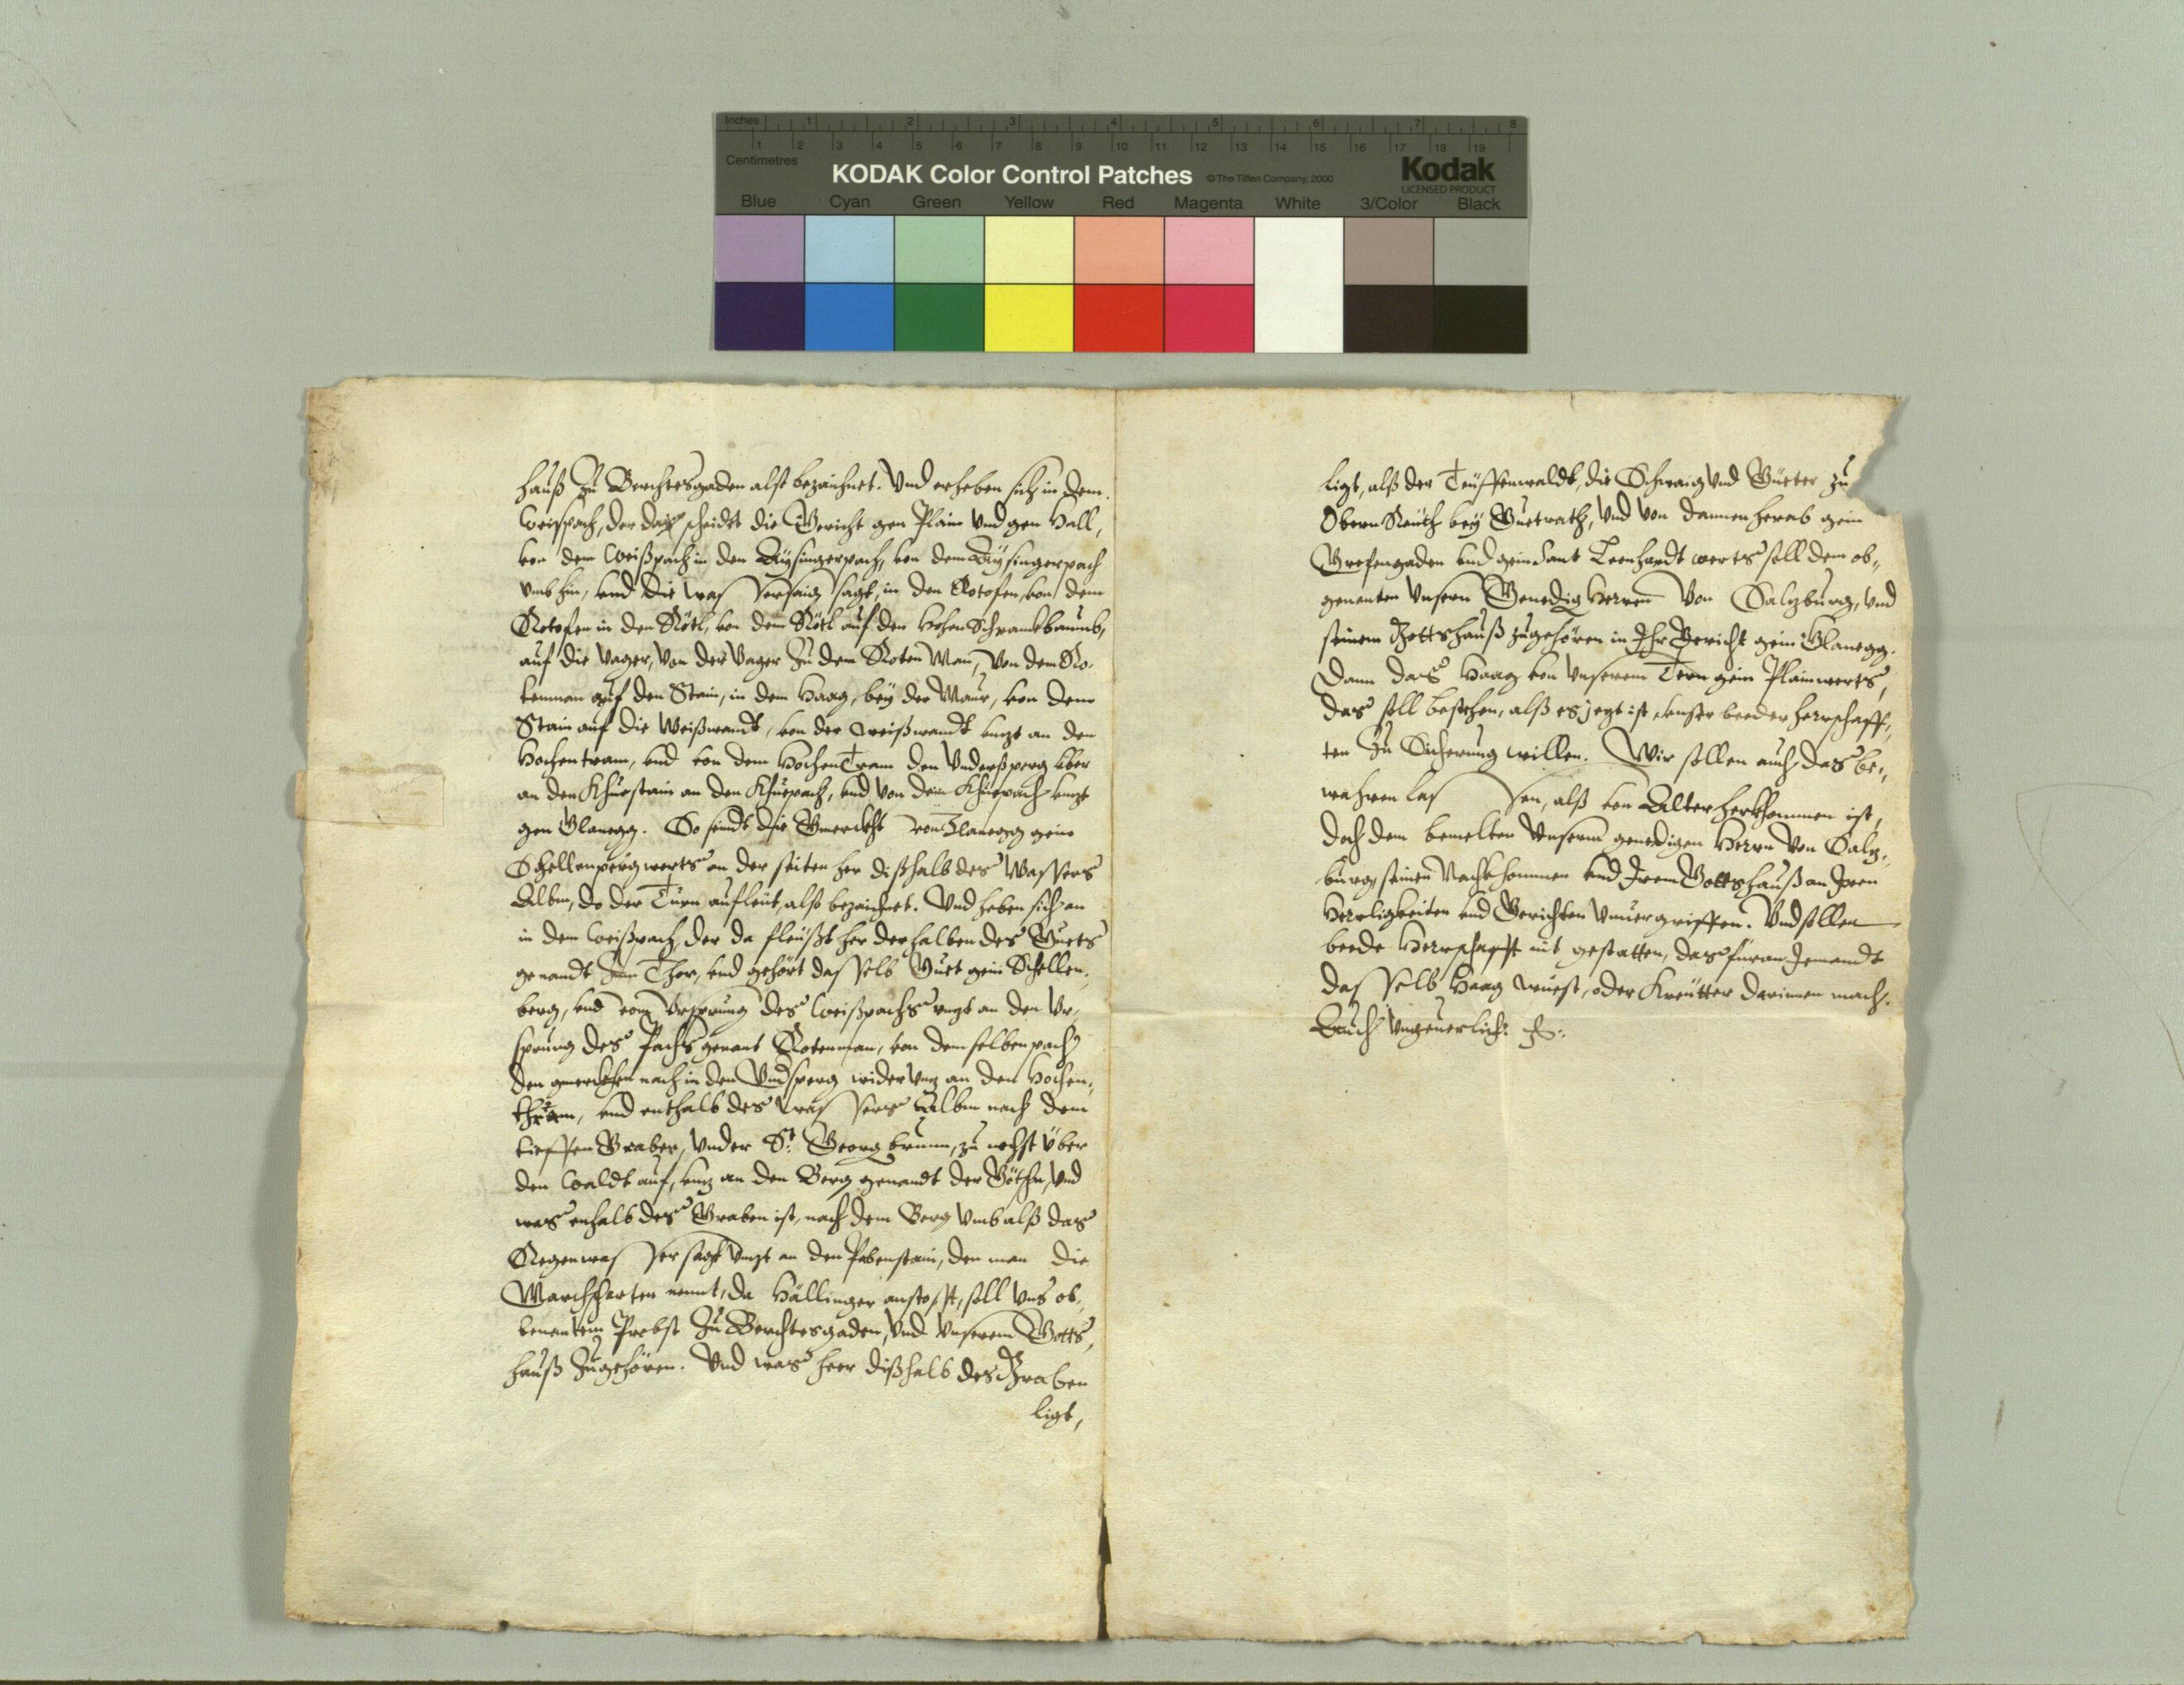 Inches 1 2 3 4 5 6 7 8
1 2 3 4 5 6 7 8 9 10 11 12 13 14 15 16 17 18 19
Centimetres
KODAK Color Control Patches ©The Tiffen Company, 2000 Kodak
LICENSED PRODUCT
Blue Cyan Green Yellow Red Magenta White 3/Color Black
hauß zu Berchtesgaden alß bezaichnet. Vnd erheben sich in dem
Weißpach, der da scheidt die Gericht gen Plain vnd gen Hall,
von dem Weißpach in den Aysingerpach, von dem Aysingerpach
vmbhin, vnd die wasserseig sagt, in den Rotofen, von dem
Rotofen in den Rötl, von dem Rötl auf den Hohen Schrankbaumb,
auf die Vager, von der Vager zu dem Roten Man, von dem Ro-
tenman auf den Stain, in dem Haag, bey der Maur, von dem
Stain auf die Weißwandt, von der weißwandt vnzt an den
Hochentram, vnd von dem Hochen Tram den Vnderßperg vber
an den Khüestain an den Khüepach, vnd von dem Khüepach vnzt
gen Glanegg. So seindt die Gmerckht von Glanegg gein
Schellenperg werts an der seiten her dißhalb des Wassers
Albm, do der Turn aufleut, alß bezaichnet. Vnd heben sich an
in dem Weißpach, der da fleußt her derhalben des Guets
genandt Thor, vnd gehört dasselb Guet gein Schellen-
berg, vnd vom Vrsprung des Weißpachs vnzt an den Vr-
sprung des Pachs genant Rotenman, von dem selben pach
den gmerckhen nach in den Vndsperg wider vnz an den Hochen-
thram, vnd enthalb des wassers Albm nach dem
tieffen Graben, vnder St: Georg brunn, zu nechst über
den Waldt auf, vnz an den Berg genandt der Göthn, vnd
was enhalb des Graben ist, nach dem Berg vmb alß das
Regenwasser sagt vnzt an den Pabenstain, den man die
Marchscharten nennt, da Hällinger anstosst, soll vns ob-
benantem Probst zu Berchtesgaden, vnd vnserem Gotts-
hauß zugehören. Vnd was heer dißhalb des Graben
ligt,
ligt, alß der Teuffenwaldt, die Schwaig vnd Güeter zu
Obern Reuth bey Guetrath, vnd von dannen herab gein
Grefengaden vnd gein Sant Leonhardt werts soll dem ob-
genanten vnsern Genedig Herren von Salzburg, vnd
seinem Gottshauß zugehören in Ihr Gericht gein Glanegg.
Dann das Haag von vnserem Tern gein Plainwerts,
das soll bestehen, alß es jezt ist vnser beeder Herrschaff-
ten zu Sicherung willen. Wir sollen auch das be-
wahren lassen, alß von Alter herkhommen ist,
doch dem bemelten vnserm genedigen Herrn von Salz-
burg, seinen Nachkhommen vnd Irem Gottshauß an Iren
Herrligkeiten vnd Gerichten vnuergriffen. Vnd sollen
beede Herrschafft nit gestatten, das füran Jemandt
dasselb Haag wüest, oder Kreütter darinnen mach.
Auch vngeuerlich: